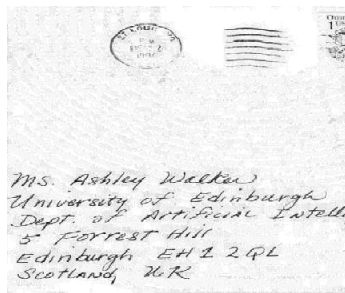 ST. LOUIS, MO
PM
1
Ms. Ashley Walker
University of Edinburgh
Dept. of Artificial Intell
5 Forrest Hill
Edinburgh EH1 2QL
Scotland, UK